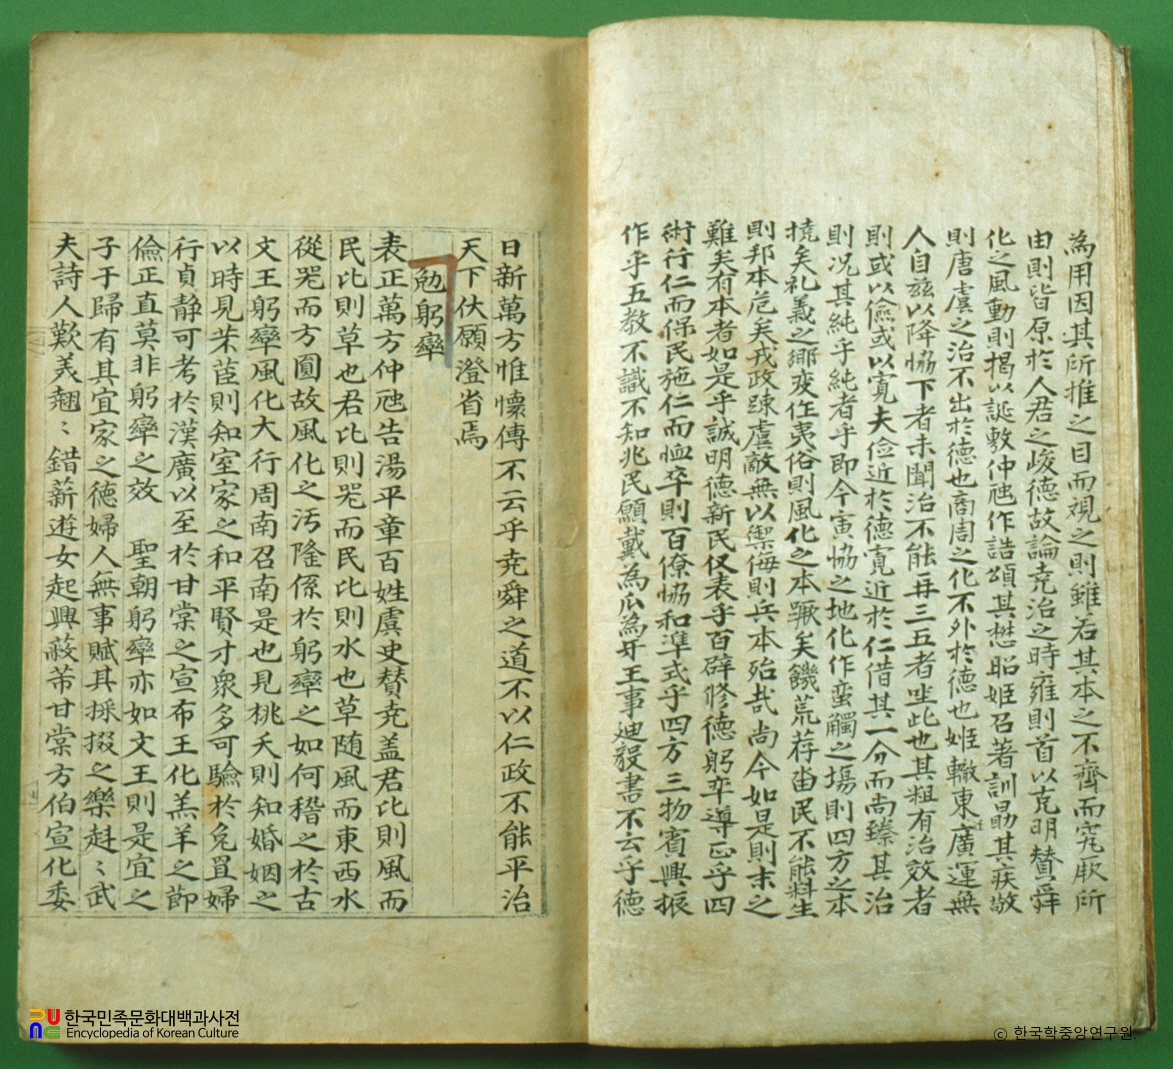 為用因其所推之目而視之則雖若其本之不齊而究厥所
由則皆原於人君之峻德故論堯治之時雍則首以克明賛舜
化之風動則揭以誕敷仲虺作誥頌其懋昭姬召著訓勗其疾敬
則唐虞之治不出於德也商周之化不外於德也姬轍東廣運無
人自玆以降恊下者未聞治不能再三五者坐此也其粗有治效者
則或以儉或以寬夫儉近於德寬近於仁借其一分而尚臻其治
則况其純乎純者乎即今寅恊之地化作蛮觸之場則四方之本
撓矣礼義之鄉変任夷俗則風化之本蹶矣饑荒荐畓民不能料生
則邦本危矣戎政踈虞敵無以禦侮則兵本殆哉尚今如是則末之
難矣有本者如是乎誠明德新民仅表乎百辟修德躬率導正乎四
術行仁而保民施仁而恤卒則百僚恊和凖式乎四方三物賓興振
作乎五教不識不知兆民願戴為瓜為牙王事廸毅書不云乎德
日新萬方惟懷傳不云乎堯舜之道不以仁政不能平治
天下伏願澄省焉
勉躬率
表正萬方仲虺告湯平章百姓虞史賛堯盖君比則風而
民比則草也君比則器而民比則水也草随風而東西水
從器而方圓故風化之汚隆係於躬率之如何稽之於古
文王躬率風化大行周南召南是也見桃夭則知婚姻之
以時見芣苢則知室家之和平賢才衆多可驗於兔罝婦
行貞静可考於漢廣以至於甘棠之宣布王化羔羊之節
儉正直莫非躬率之效 聖朝躬率亦如文王則是宜之
子于歸有其宜家之德婦人無事賦其採掇之樂赳〻武
夫詩人歎美翹〻錯薪遊女起興蔽芾甘棠方伯宣化委
한국민족문화대백과사전
Encyclopedia of Korean Culture
ⓒ 한국학중앙연구원.